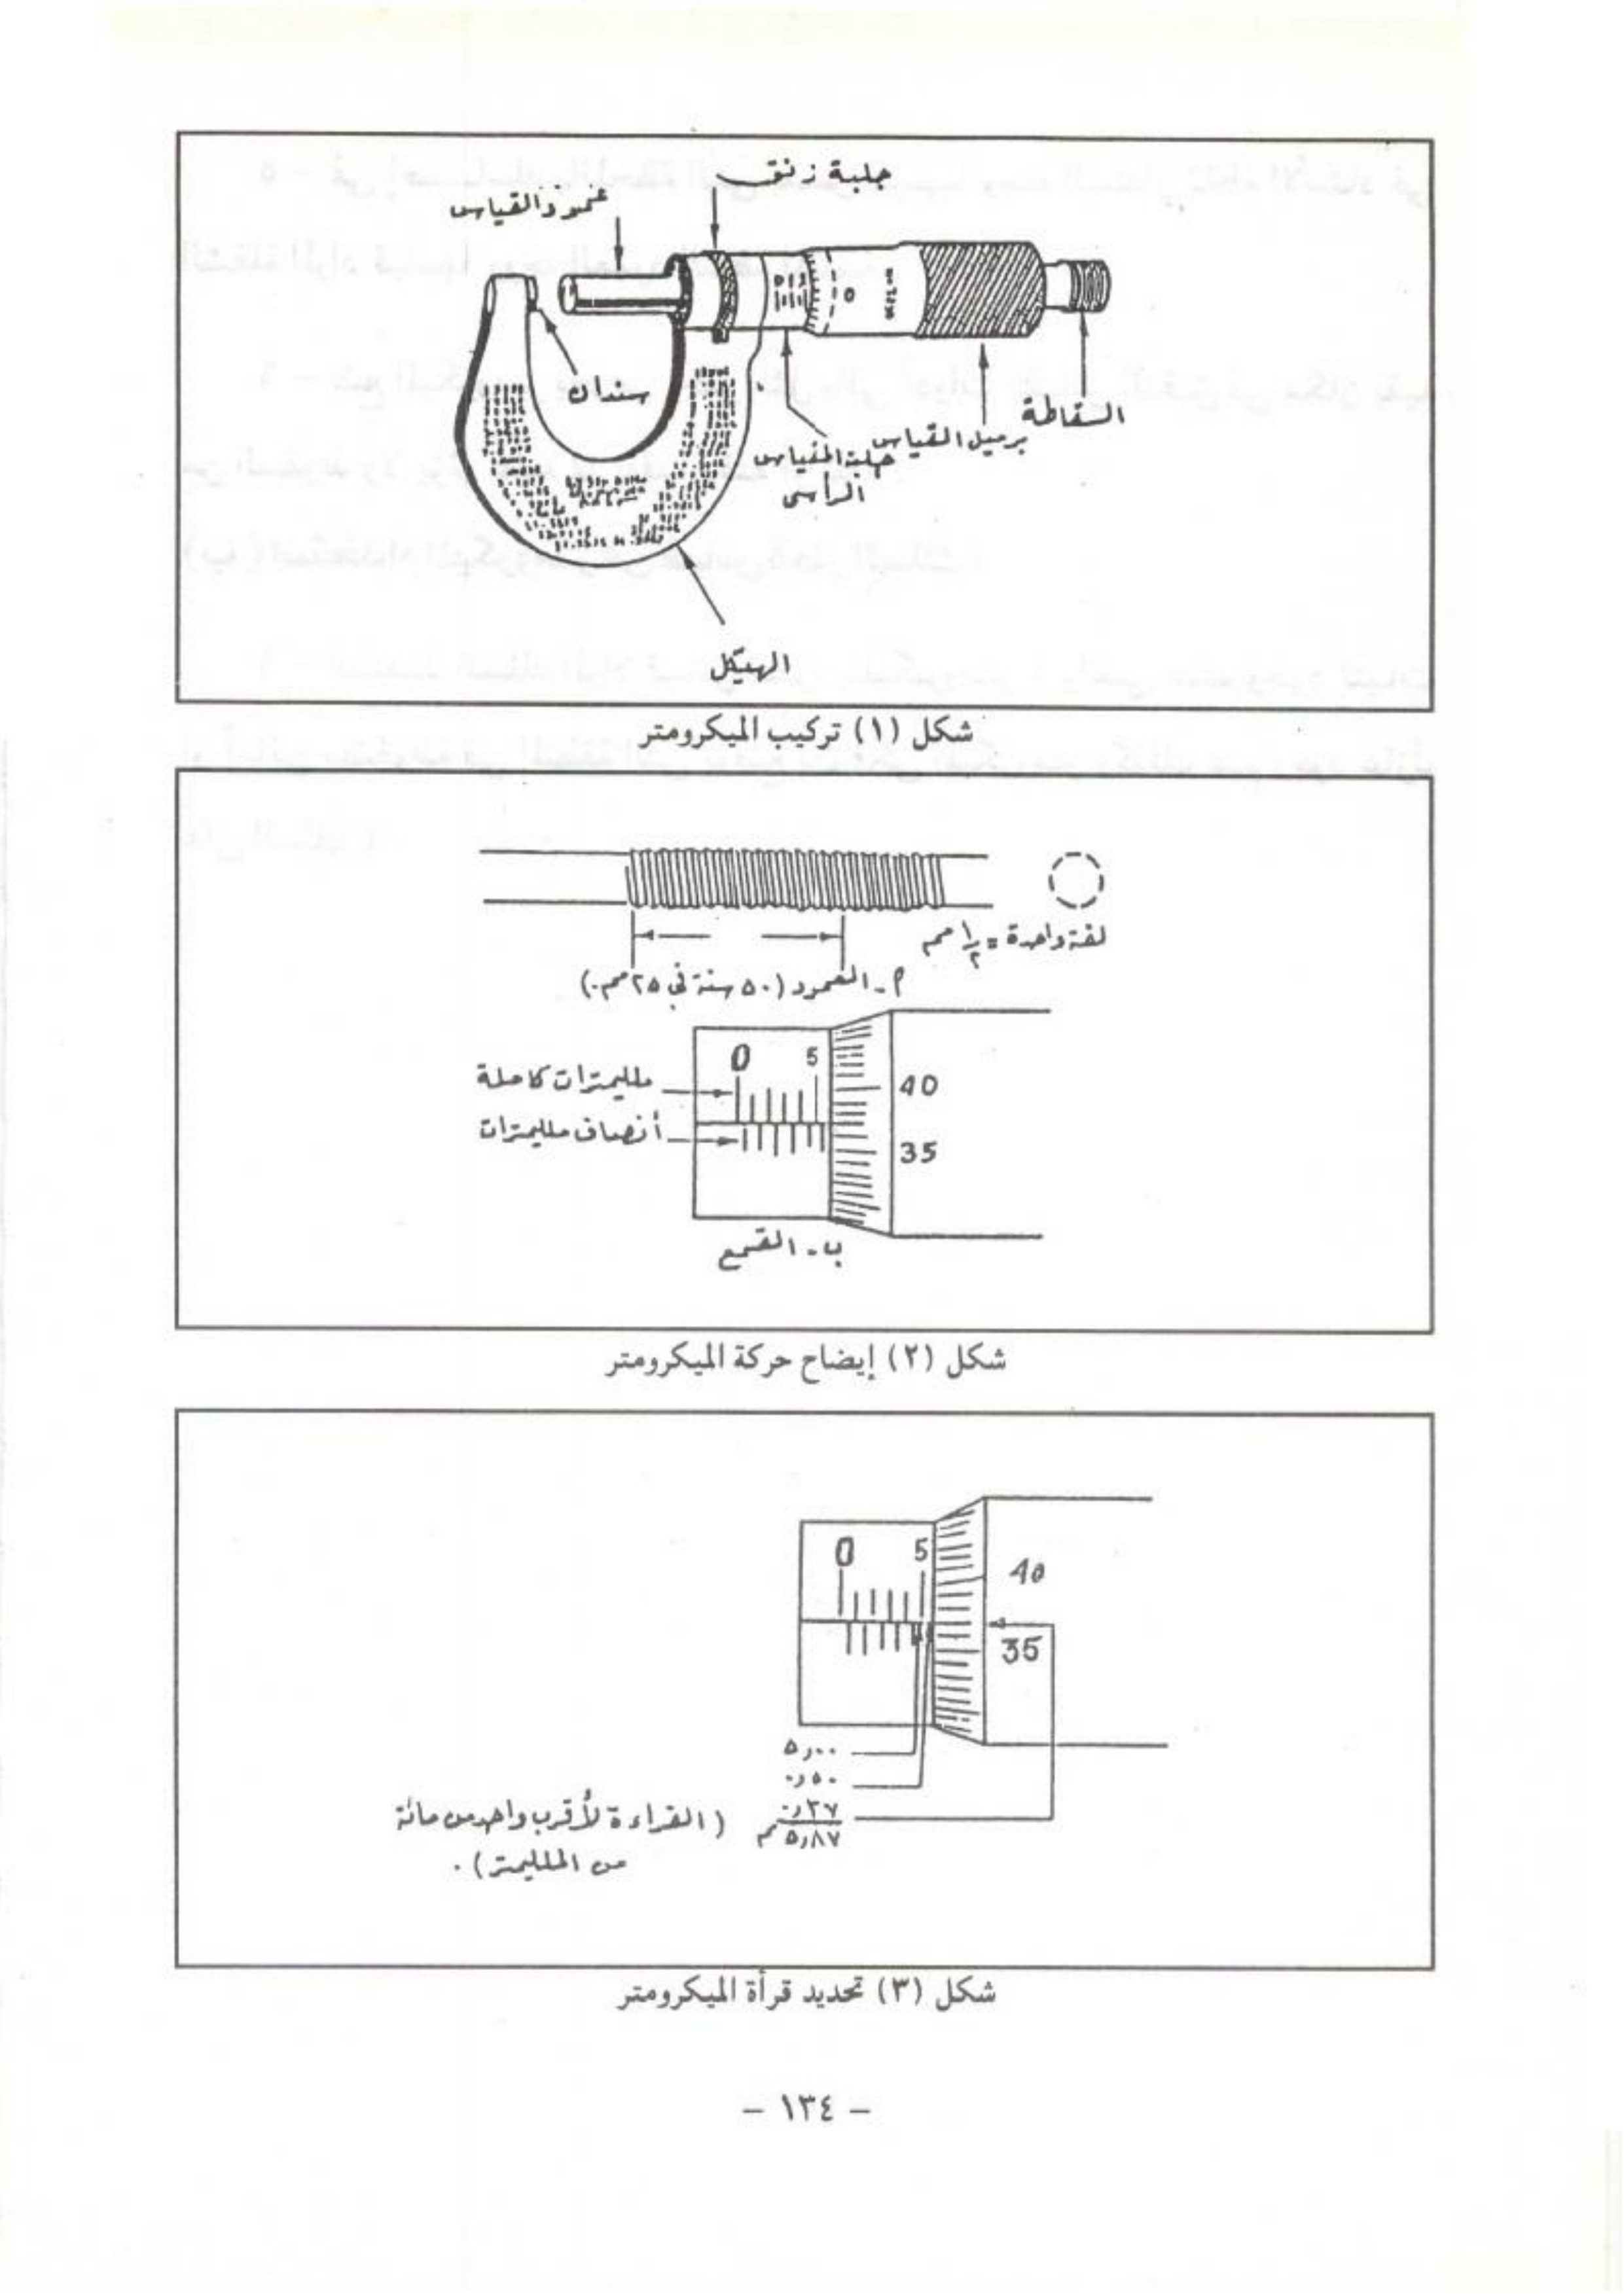 جلبة زنق
عمود القياس
سندان
السقاطة
برميل القياس
جلبة المقياس
الرأسى
الهيكل
شكل (١) تركيب الميكرومتر
لفة واحدة = ١/٢ مم
م - العمود (٥٠ سنة في ٢٥ مم.)
0 5
40
35
ملليمترات كاملة
أنصاف ملليمترات
ب - القمع
شكل (٢) إيضاح حركة الميكرومتر
0 5
40
35
٥,٠٠
٠,٥٠
٠,٣٧
٥,٨٧ مم (القراءة لأقرب واحد من مائة
من الملليمتر).
شكل (٣) تحديد قرأة الميكرومتر
– ١٣٤ –